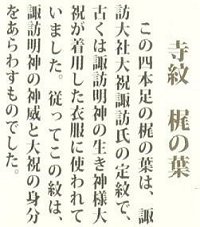 寺紋　梶の葉
この四本足の梶の葉は、諏
訪大社大祝諏訪氏の定紋で、
古くは諏訪明神の生き神様大
祝が着用した衣服に使われて
いました。従ってこの紋は、
諏訪明神の神威と大祝の身分
をあらわすものでした。